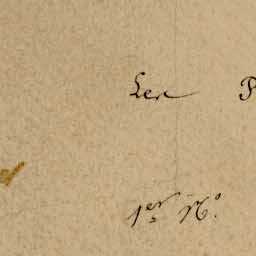 Ler P
1er No.